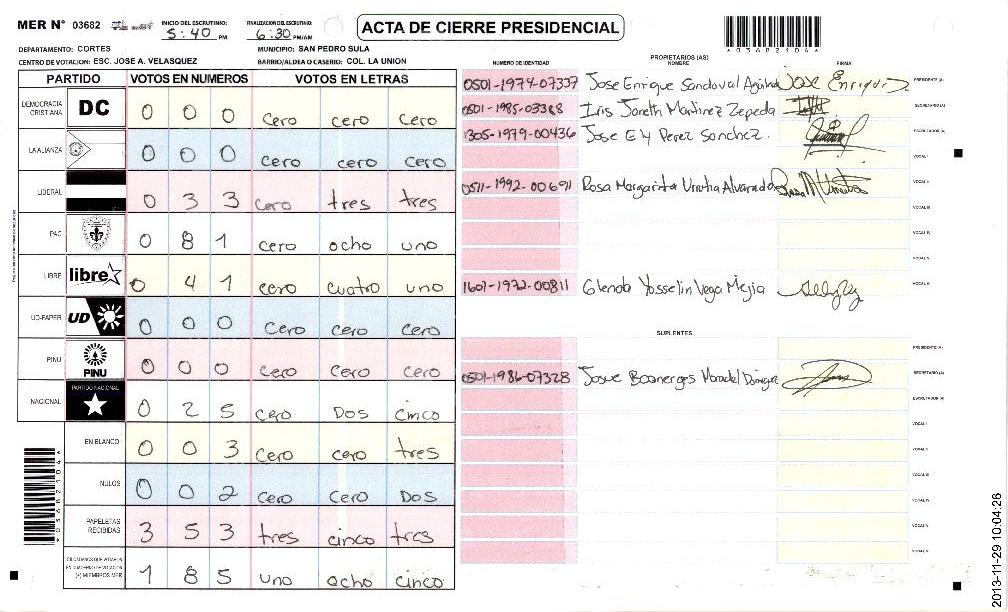 MER N° 03682
INICIO DEL ESCRUTINIO:
5:40 PM
FINALIZACION DEL ESCRUTINIO:
6:30 PM/AM
ACTA DE CIERRE PRESIDENCIAL
*03682104*
DEPARTAMENTO: CORTES
MUNICIPIO: SAN PEDRO SULA
CENTRO DE VOTACION: ESC. JOSE A. VELASQUEZ
BARRIO/ALDEA O CASERIO: COL. LA UNION
PARTIDO VOTOS EN NUMEROS VOTOS EN LETRAS
DEMOCRACIA CRISTIANA DC 0 0 0 cero cero cero
LA ALIANZA 0 0 0 cero cero cero
LIBERAL 0 3 3 cero tres tres
PAC 0 8 1 cero ocho uno
LIBRE libre 0 4 1 cero cuatro uno
UD-FAPER UD 0 0 0 cero cero cero
PINU PINU 0 0 0 cero cero cero
NACIONAL PARTIDO NACIONAL 0 2 5 cero Dos cinco
EN BLANCO 0 0 3 cero cero tres
NULOS 0 0 2 cero cero Dos
PAPELETAS RECIBIDAS 3 5 3 tres cinco tres
CIUDADANOS QUE VOTARON EN CUADERNO DE VOTACION (+) MIEMBROS MER 1 8 5 uno ocho cinco
*03682104*
PROPIETARIOS (AS)
NUMERO DE IDENTIDAD NOMBRE FIRMA
0501-1974-07337 Jose Enrique Sandoval Jose Enrique PRESIDENTE (A)
0501-1985-03388 Iris Janeth Martinez Zepeda SECRETARIO (A)
1305-1979-00436 Jose Ely Perez Sanchez. ESCRUTADOR (A)
VOCAL I
0511-1992-00691 Rosa Margarita Urrutia Alvarado VOCAL II
VOCAL III
VOCAL IV
VOCAL V
1601-1972-00811 Glenda Yosselin Vega Mejia VOCAL VI
SUPLENTES
PRESIDENTE (A)
0501-1986-07328 Josue Boanerges SECRETARIO (A)
ESCRUTADOR (A)
VOCAL I
VOCAL II
VOCAL III
VOCAL IV
VOCAL V
VOCAL VI
2013-11-29 10:04:26